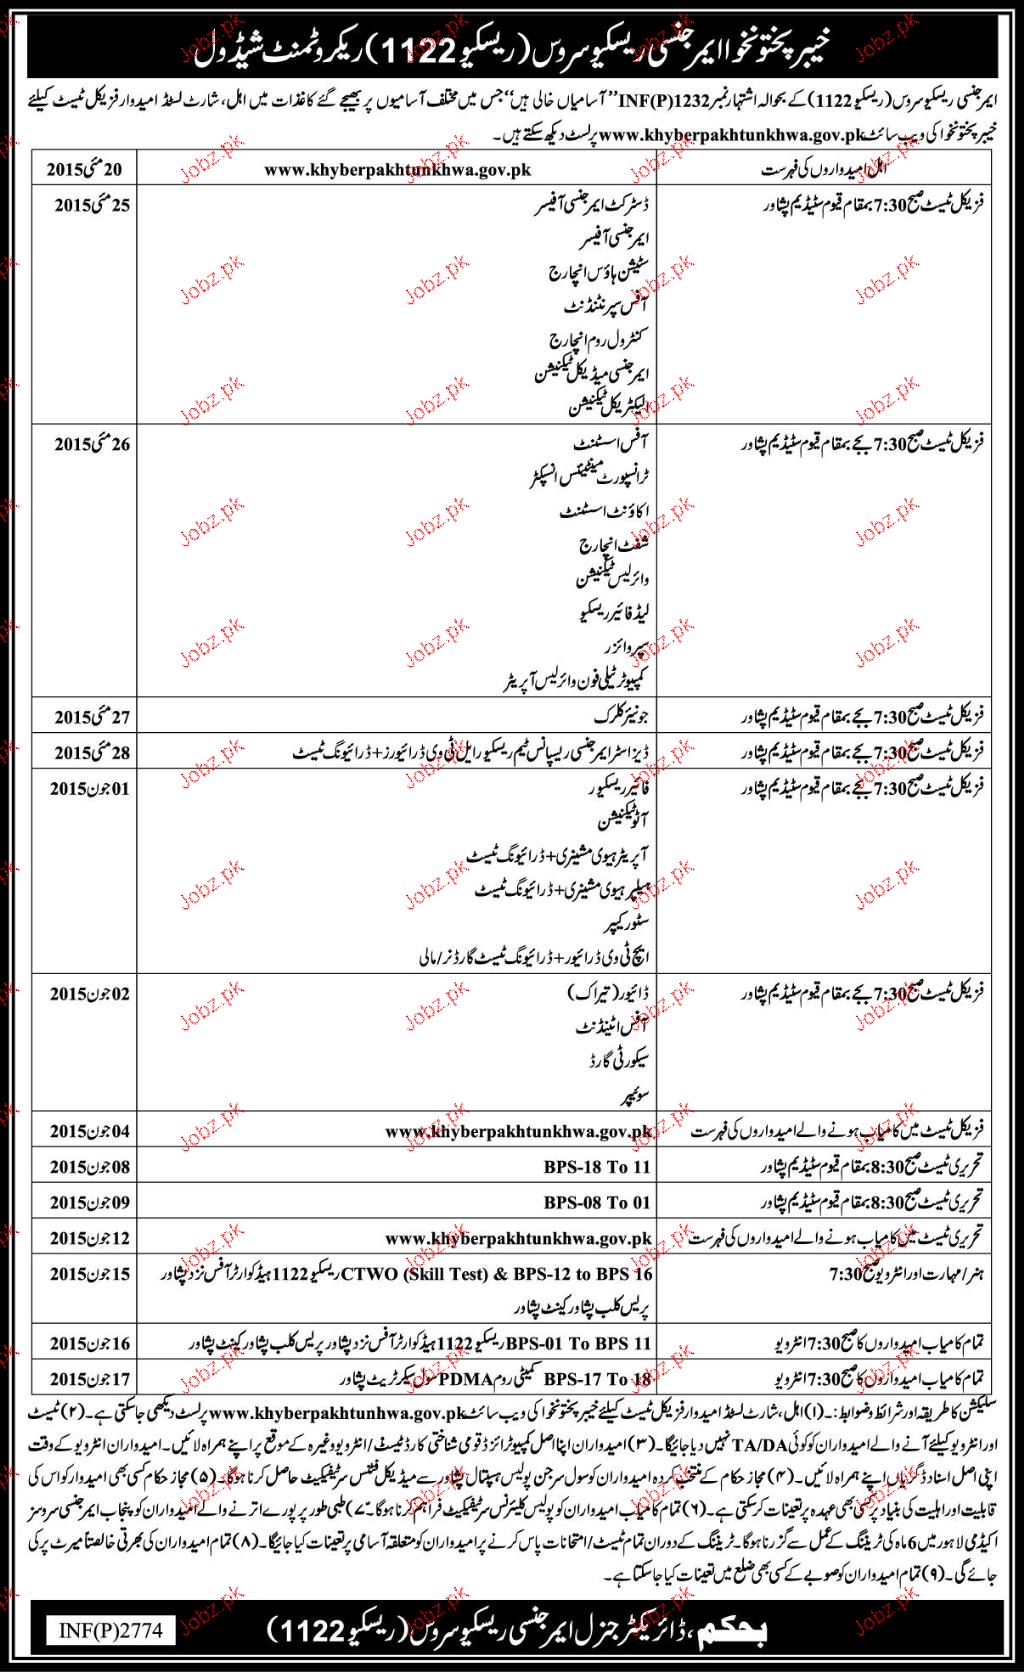 خیبر پختونخوا ایمرجنسی ریسکیو سروس (ریسکیو 1122) ریکروٹمنٹ شیڈول
ایمرجنسی ریسکیو سروس (ریسکیو 1122) کے بحوالہ اشتہار نمبر INF(P)1232 "آسامیاں خالی ہیں" جس میں مختلف آسامیوں پر بھیجے گئے کاغذات میں اہل، شارٹ لسٹڈ امیدوار فزیکل ٹیسٹ کیلئے
خیبر پختونخوا کی ویب سائٹ www.khyberpakhtunkhwa.gov.pk پر لسٹ دیکھ سکتے ہیں۔
اہل امیدواروں کی فہرست www.khyberpakhtunkhwa.gov.pk 20 مئی 2015
فزیکل ٹیسٹ صبح 7:30 بمقام قیوم سٹیڈیم پشاور ڈسٹرکٹ ایمرجنسی آفیسر 25 مئی 2015
ایمرجنسی آفیسر
سٹیشن ہاؤس انچارج
آفس سپرنٹنڈنٹ
کنٹرول روم انچارج
ایمرجنسی میڈیکل ٹیکنیشن
الیکٹریکل ٹیکنیشن
فزیکل ٹیسٹ صبح 7:30 بجے بمقام قیوم سٹیڈیم پشاور آفس اسسٹنٹ 26 مئی 2015
ٹرانسپورٹ مینٹیننس انسپکٹر
اکاؤنٹ اسسٹنٹ
شفٹ انچارج
وائرلیس ٹیکنیشن
لیڈ فائیر ریسکیو
سپروائزر
کمپیوٹر ٹیلی فون وائرلیس آپریٹر
فزیکل ٹیسٹ صبح 7:30 بجے بمقام قیوم سٹیڈیم پشاور جونیئر کلرک 27 مئی 2015
فزیکل ٹیسٹ صبح 7:30 بجے بمقام قیوم سٹیڈیم پشاور ڈیزاسٹر ایمرجنسی ریسپانس ٹیم ریسکیور ایل ٹی وی ڈرائیورز + ڈرائیونگ ٹیسٹ 28 مئی 2015
فزیکل ٹیسٹ صبح 7:30 بجے بمقام قیوم سٹیڈیم پشاور فائیر ریسکیور 01 جون 2015
آٹو ٹیکنیشن
آپریٹر ہیوی مشینری + ڈرائیونگ ٹیسٹ
ہیلپر ہیوی مشینری + ڈرائیونگ ٹیسٹ
سٹور کیپر
ایچ ٹی وی ڈرائیور + ڈرائیونگ ٹیسٹ گارڈنر/مالی
فزیکل ٹیسٹ صبح 7:30 بجے بمقام قیوم سٹیڈیم پشاور ڈائیور (تیراک) 02 جون 2015
آفس اٹینڈنٹ
سیکورٹی گارڈ
سویپر
فزیکل ٹیسٹ میں کامیاب ہونے والے امیدواروں کی فہرست www.khyberpakhtunkhwa.gov.pk 04 جون 2015
تحریری ٹیسٹ صبح 8:30 بمقام قیوم سٹیڈیم پشاور BPS-18 To 11 08 جون 2015
تحریری ٹیسٹ صبح 8:30 بمقام قیوم سٹیڈیم پشاور BPS-08 To 01 09 جون 2015
تحریری ٹیسٹ میں کامیاب ہونے والے امیدواروں کی فہرست www.khyberpakhtunkhwa.gov.pk 12 جون 2015
ہنر/مہارت اور انٹرویو صبح 7:30 CTWO (Skill Test) & BPS-12 to BPS 16 ریسکیو 1122 ہیڈ کوارٹر آفس نزد پشاور 15 جون 2015
پریس کلب پشاور کینٹ پشاور
تمام کامیاب امیدواروں کا صبح 7:30 انٹرویو BPS-01 To BPS 11 ریسکیو 1122 ہیڈ کوارٹر آفس نزد پشاور پریس کلب پشاور کینٹ پشاور 16 جون 2015
تمام کامیاب امیدواروں کا صبح 7:30 انٹرویو BPS-17 To 18 کمیٹی روم PDMA سول سیکرٹریٹ پشاور 17 جون 2015
سلیکشن کا طریقہ اور شرائط و ضوابط:۔ (۱) اہل، شارٹ لسٹڈ امیدوار فزیکل ٹیسٹ کیلئے خیبر پختونخوا کی ویب سائٹ www.khyberpakhtunhwa.gov.pk پر لسٹ دیکھی جاسکتی ہے۔ (۲) ٹیسٹ
اور انٹرویو کیلئے آنے والے امیدواران کو کوئی TA/DA نہیں دیا جائیگا۔ (۳) امیدواران اپنا اصل کمپیوٹرائزڈ قومی شناختی کارڈ ٹیسٹ/انٹرویو وغیرہ کے موقع پر اپنے ہمراہ لائیں۔ امیدواران انٹرویو کے وقت
اپنی اصل اسناد ڈگریاں اپنے ہمراہ لائیں۔ (۴) مجاز حکام کے منتخب کردہ امیدواران کو سول سرجن پولیس ہسپتال پشاور سے میڈیکل فٹنس سرٹیفکیٹ حاصل کرنا ہوگا۔ (۵) مجاز حکام کسی بھی امیدوار کو اس کی
قابلیت اور اہلیت کی بنیاد پر کسی بھی عہدہ پر تعینات کرسکتی ہے۔ (۶) تمام کامیاب امیدواران کو پولیس کلیئرنس سرٹیفکیٹ فراہم کرنا ہوگا۔ ۷) طبی طور پر پورے اترنے والے امیدواران کو پنجاب ایمرجنسی سروسز
اکیڈمی لاہور میں 6 ماہ کی ٹریننگ کے عمل سے گزرنا ہوگا۔ ٹریننگ کے دوران تمام ٹیسٹ/امتحانات پاس کرنے پر امیدواران کو متعلقہ آسامی پر تعینات کیا جائیگا۔ (۸) تمام امیدواران کی بھرتی خالصتاً میرٹ پر کی
جائے گی۔ (۹) تمام امیدواران کو صوبے کے کسی بھی ضلع میں تعینات کیا جاسکتا ہے۔
بحکم، ڈائریکٹر جنرل ایمرجنسی ریسکیو سروس (ریسکیو 1122)
INF(P)2774
Jobz.pk